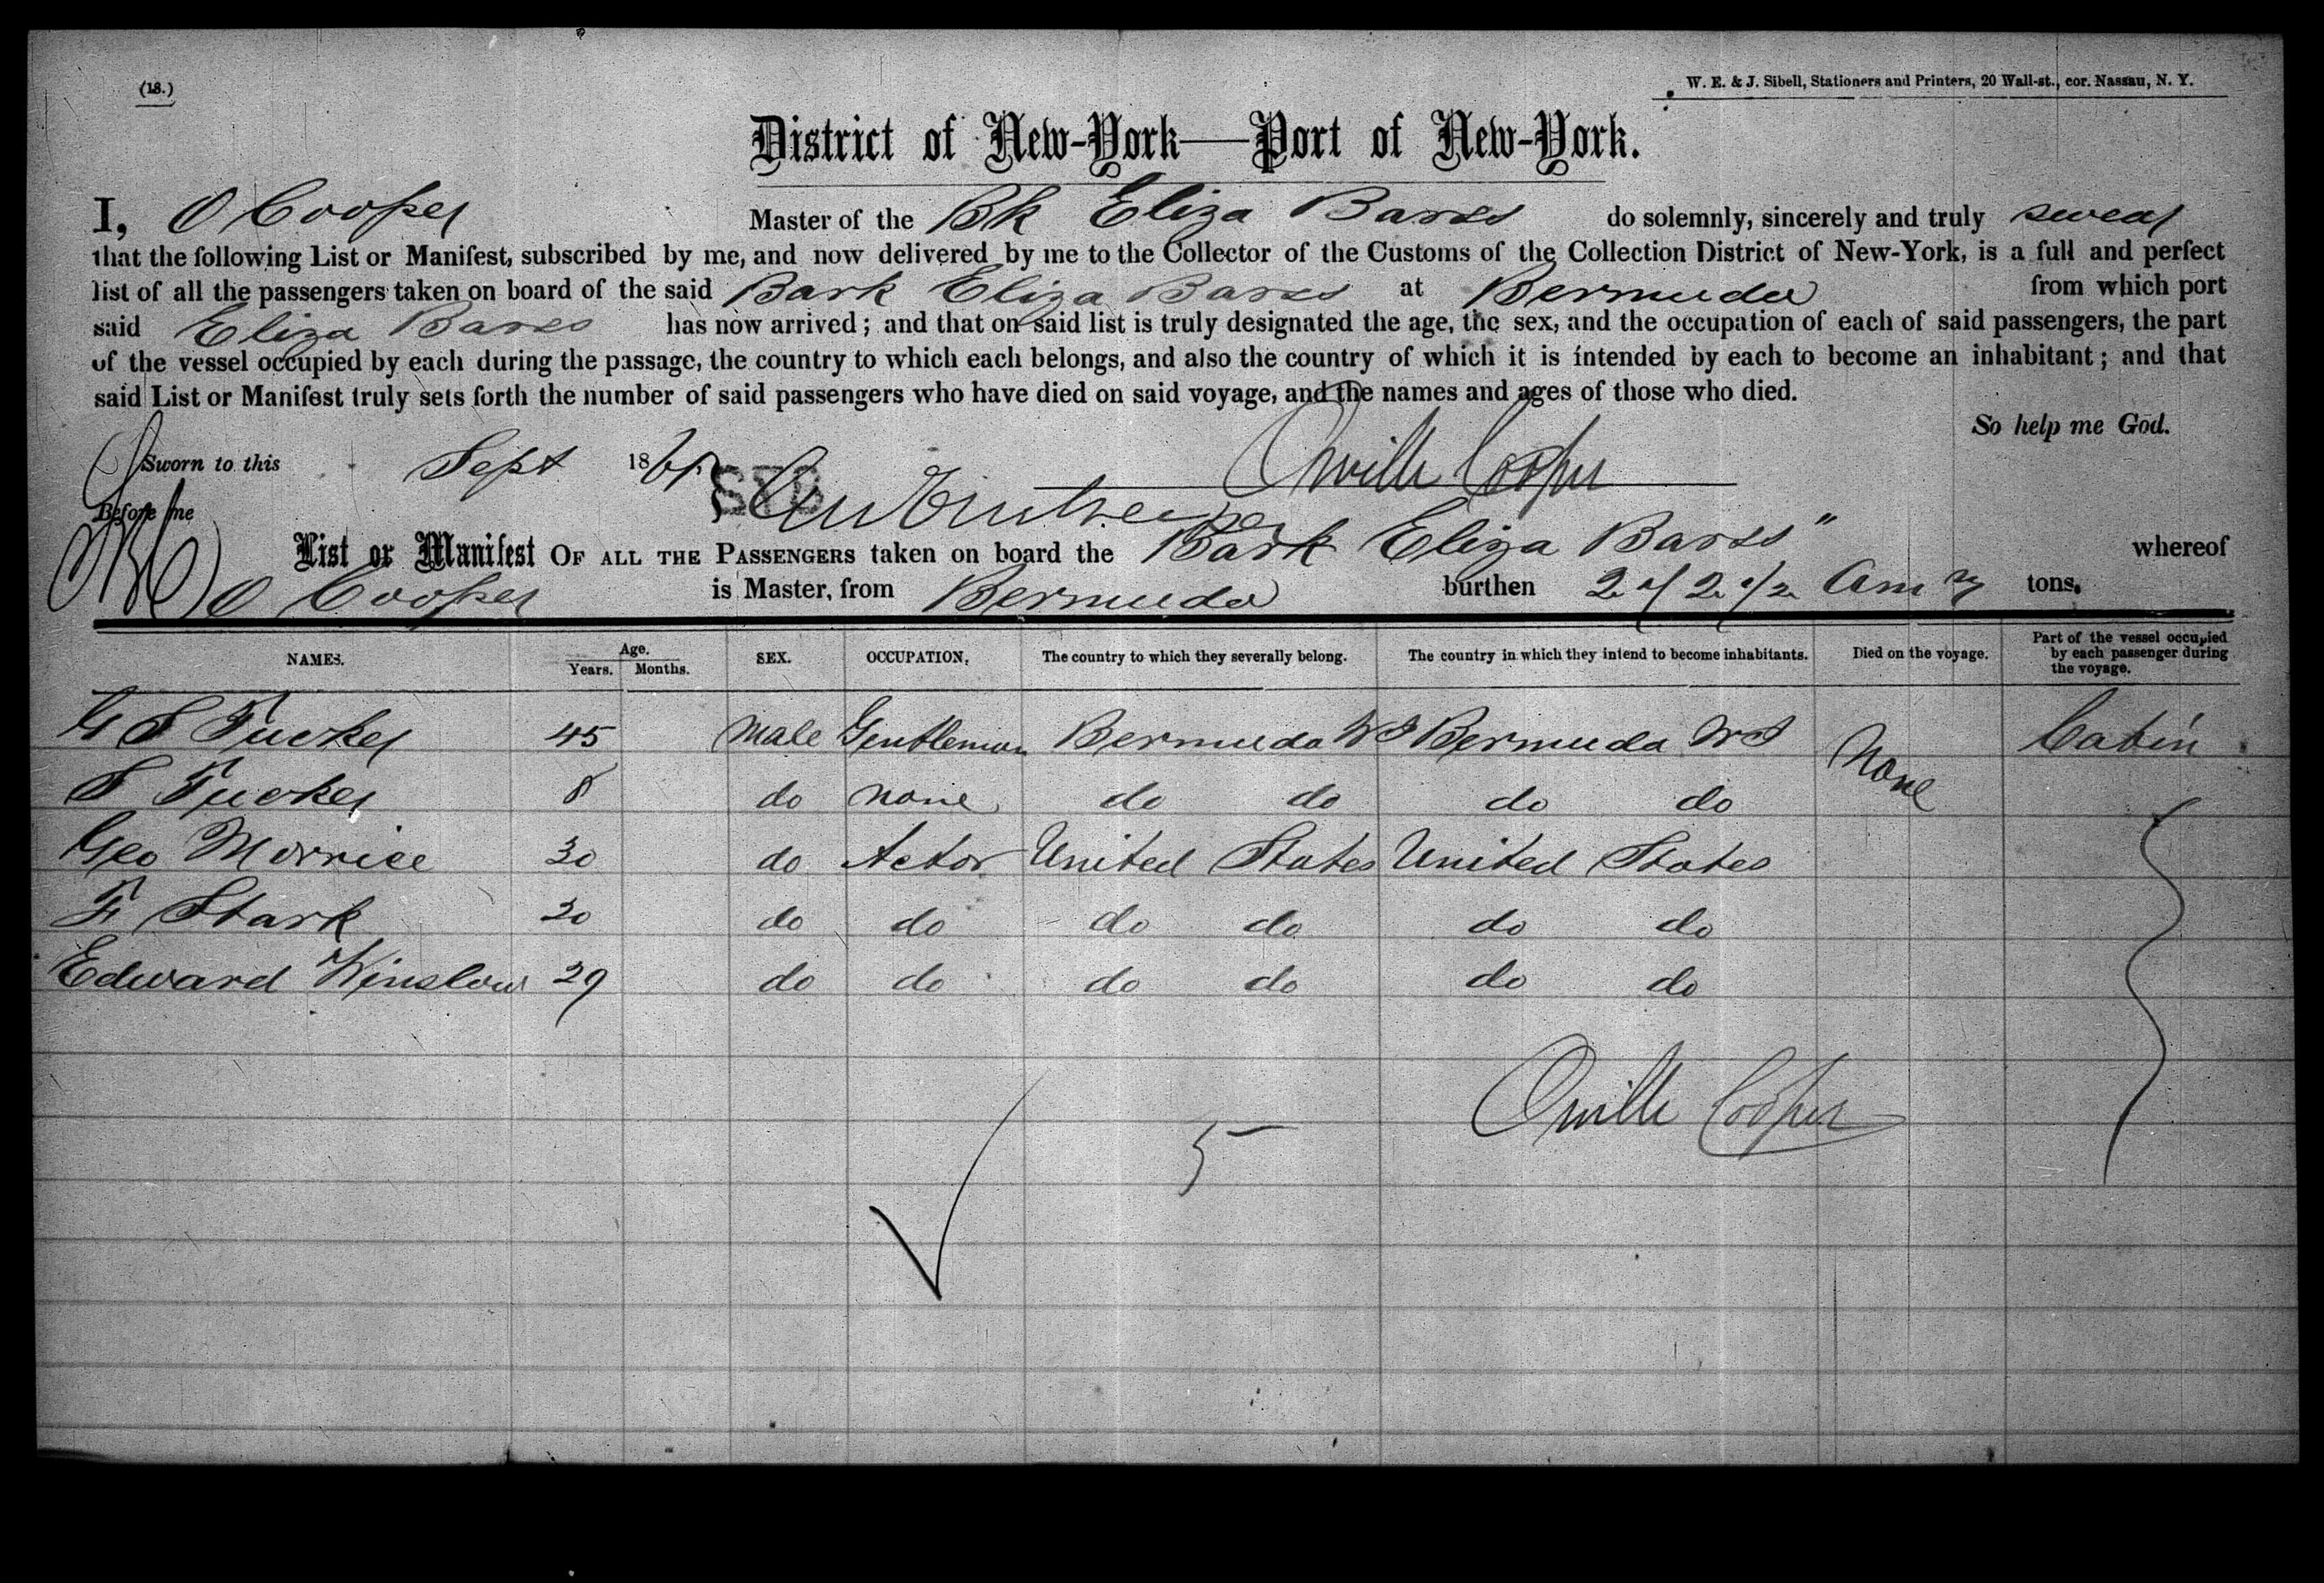 (18.)
W. E. & J. Sibell, Stationers and Printers, 20 Wall-st., cor. Nassau, N. Y.
District of New-York—Port of New-York.
I, O Cooper Master of the Bk Eliza Barss do solemnly, sincerely and truly swear
that the following List or Manifest, subscribed by me, and now delivered by me to the Collector of the Customs of the Collection District of New-York, is a full and perfect
list of all the passengers taken on board of the said Bark Eliza Barss at Bermuda from which port
said Eliza Barss has now arrived; and that on said list is truly designated the age, the sex, and the occupation of each of said passengers, the part
of the vessel occupied by each during the passage, the country to which each belongs, and also the country of which it is intended by each to become an inhabitant; and that
said List or Manifest truly sets forth the number of said passengers who have died on said voyage, and the names and ages of those who died.
So help me God.
Sworn to this Sept 18 Orville Cooper
Before me
List or Manifest OF ALL THE PASSENGERS taken on board the Bark Eliza Barss" whereof
O Cooper is Master, from Bermuda burthen tons.
NAMES. Age. Years. Months. SEX. OCCUPATION. The country to which they severally belong. The country in which they intend to become inhabitants. Died on the voyage. Part of the vessel occupied by each passenger during the voyage.
G S Tucker 45 Male Gentleman Bermuda WI Bermuda WI None Cabin
S Tucker 8 do none do do do do
Geo Morrice 30 do Actor United States United States
F Stark 30 do do do do do do
Edward Winslow 29 do do do do do do
Orville Cooper
5